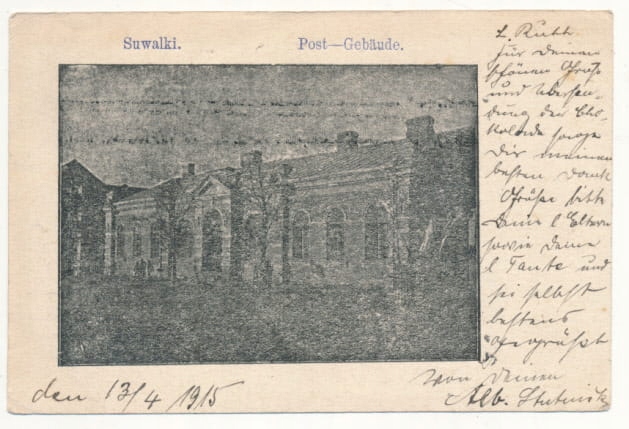 Suwalki.
Post—Gebäude.
L. Ruth
für Deinen
schönen Gruß
und Übersen-
dung der Cho-
kolade sage
Dir meinen
besten Dank
Grüße bitte
Deine l Eltern
sowie Deine
l Tante und
sei selbst
bestens
gegrüßt
von Deinem
Alb.
den 13/4 1915